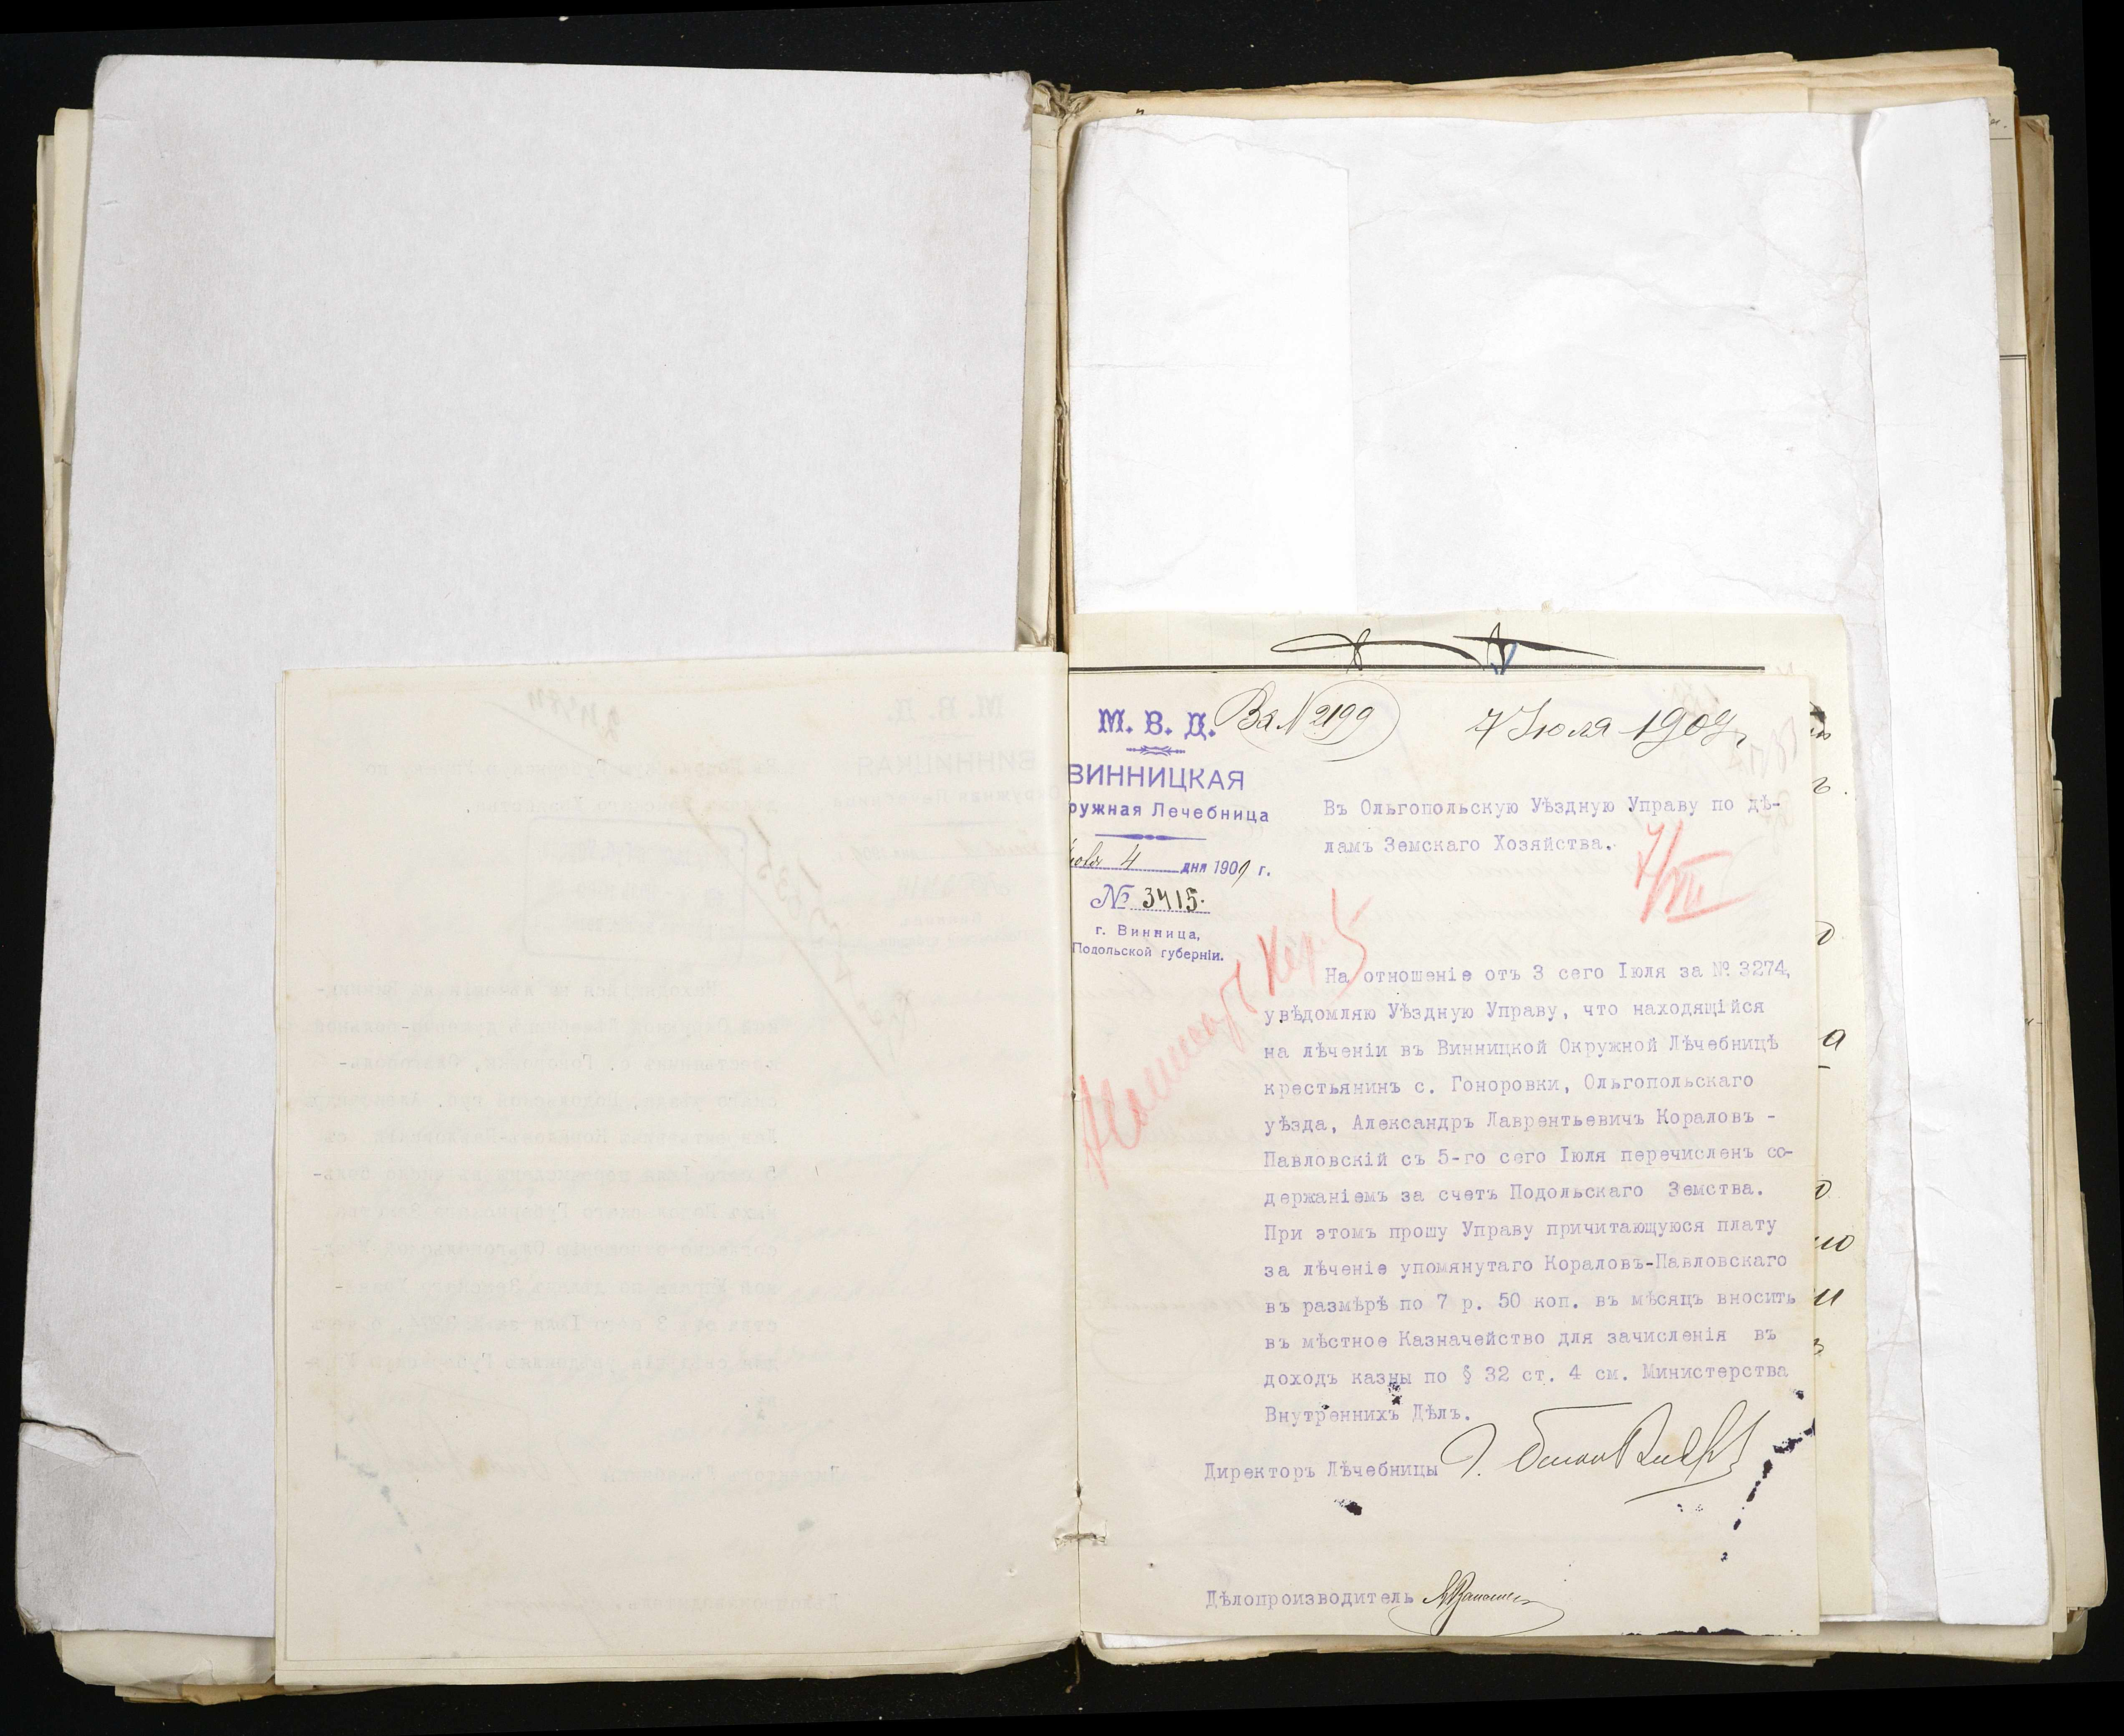 Вх № 2199
7 Июля 1909 г.
М. В. Д.
ВИННИЦКАЯ
ружная Лечебница
4 дня 1909 г.
№ 3415.
г. Винница,
Подольской губерніи.
Въ Ольгопольскую Уѣздную Управу по дѣ-
ламъ Земскаго Хозяйства.
7/VII
На отношеніе отъ 3 сего Іюля за № 3274,
увѣдомляю Уѣздную Управу, что находящійся
на лѣченіи въ Винницкой Окружной Лѣчебницѣ
крестьянинъ с. Гоноровки, Ольгопольскаго
уѣзда, Александръ Лаврентьевичъ Кораловъ -
Павловскій съ 5-го сего Іюля перечисленъ со-
держаніемъ за счетъ Подольскаго Земства.
При этомъ прошу Управу причитающуюся плату
за лѣченіе упомянутаго Кораловъ-Павловскаго
въ размѣрѣ по 7 р. 50 коп. въ мѣсяцъ вносить
въ мѣстное Казначейство для зачисленія въ
доходъ казны по § 32 ст. 4 см. Министерства
Внутреннихъ Дѣлъ.
Директоръ Лѣчебницы
Дѣлопроизводитель